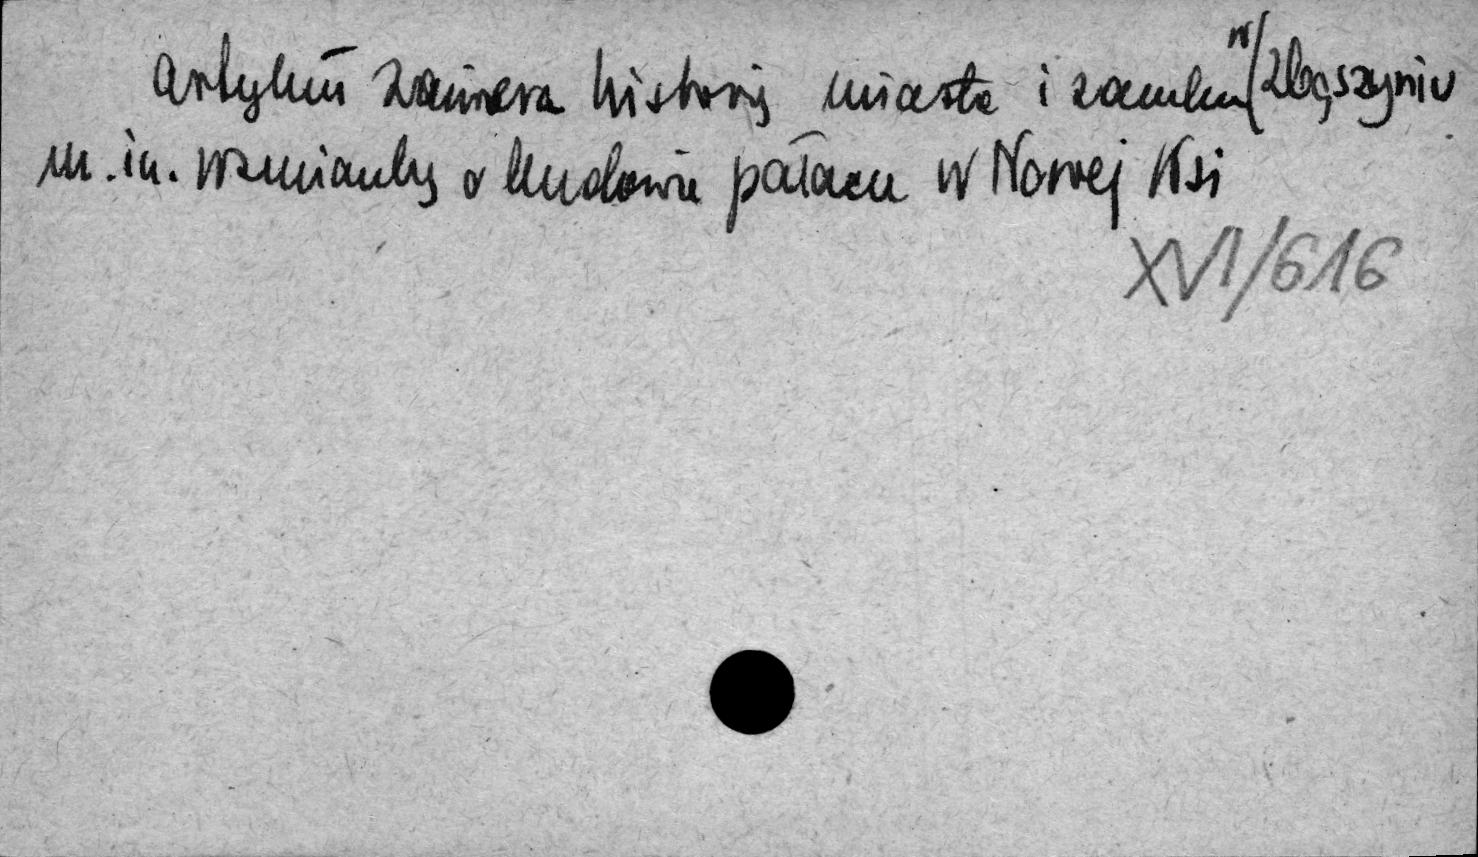 artykuł zawiera historię miasta i zamku w Zbąszyniu
m.in. wzmianky o budowie pałacu w Nowej Wsi
XVI/616